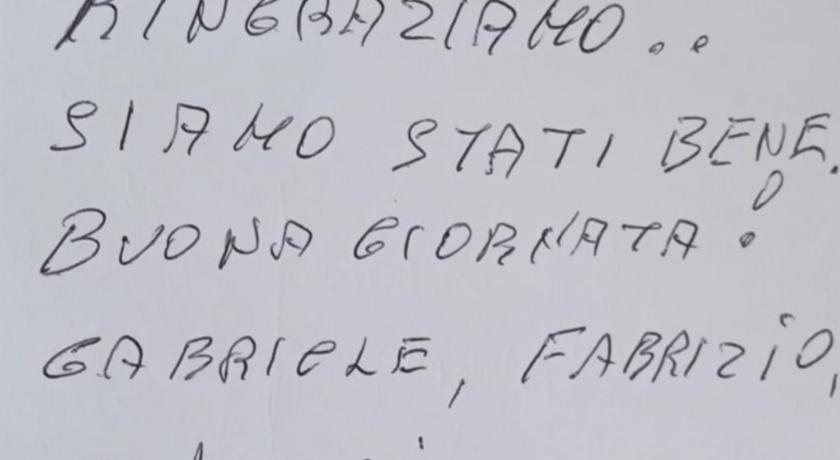 RINGRAZIAMO..
SIAMO STATI BENE.
BUONA GIORNATA!
GABRIELE, FABRIZIO,